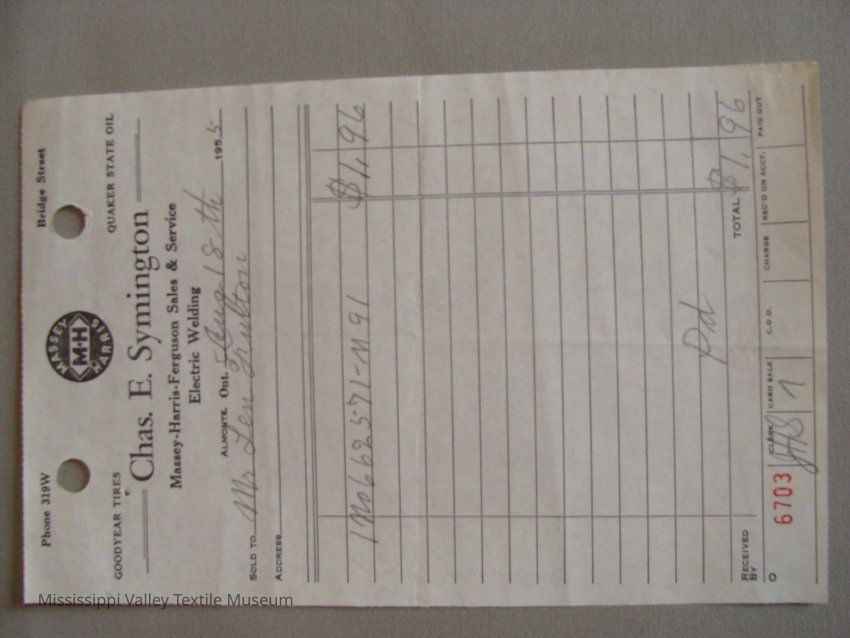 Phone 319W Bridge Street
MASSEY M-H HARRIS
GOODYEAR TIRES QUAKER STATE OIL
Chas. E. Symington
Massey-Harris-Ferguson Sales & Service
Electric Welding
ALMONTE, Ont. Aug 18th 1955
SOLD TO Mr Len Fulton
ADDRESS
1 No 662571-M91 $1.96
Pd
TOTAL $1.96
RECEIVED BY
CLERK CASH SALE C.O.D. CHARGE REC'D ON ACCT. PAID OUT
6703 1
Mississippi Valley Textile Museum